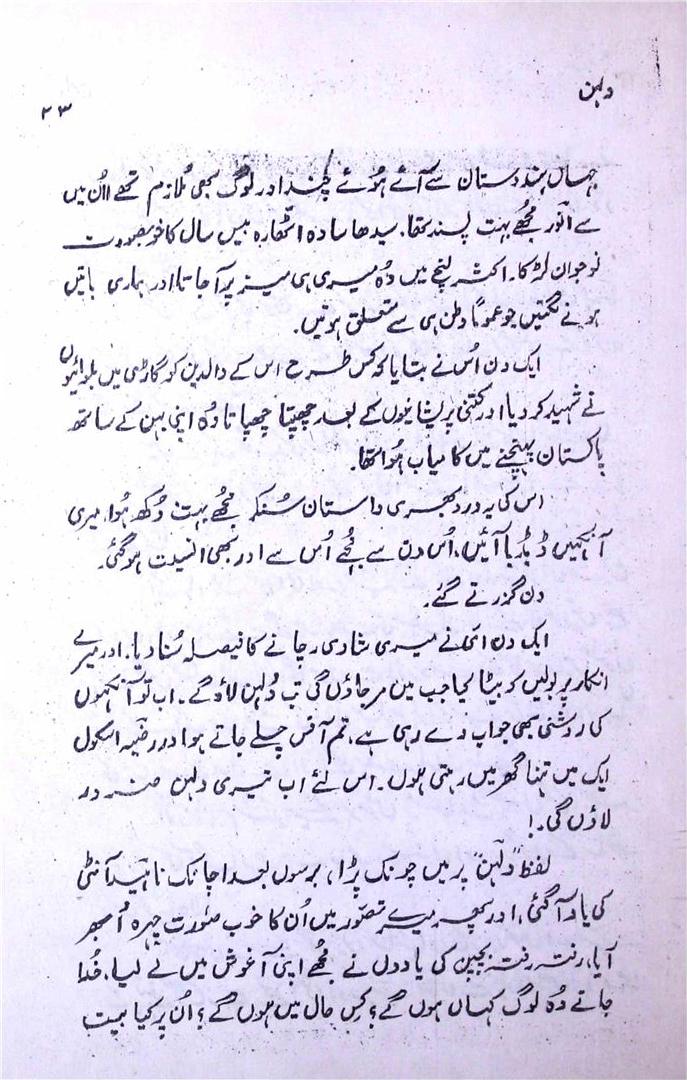 دلہن
۲۳
جہاں ہندوستان سے آئے ہوئے چند اور لوگ بھی مُلازم تھے اُن میں
سے انور مجھے بہت پسند تھا. سیدھا سادہ اٹھارہ بیس سال کا خوبصورت
نوجوان لڑکا. اکثر لنچ میں وُہ میری ہی میز پر آ جاتا اور ہماری باتیں
ہونے لگتیں جو عموماً وطن ہی سے متعلق ہوتیں.
ایک دن اُس نے بتایا کہ کس طرح اس کے والدین کو گاڑی میں بلوائیوں
نے شہید کر دیا اور کتنی پریشانیوں کے بعد چھپتا چھپاتا وُہ اپنی بہن کے ساتھ
پاکستان پہنچنے میں کامیاب ہُوا تھا.
اس کی یہ درد بھری داستان سُنکر مجھے بہت دُکھ ہُوا، میری
آنکھیں ڈبڈبا آئیں، اُس دن سے مجھے اُس سے اور بھی انسیت ہو گئی.
دن گزرتے گئے.
ایک دن امی نے میری شادی رچانے کا فیصلہ سُنا دیا. اور میرے
انکار پر بولیں کہ بیٹا کیا جب میں مر جاؤں گی تب دُلہن لاؤ گے. اب تو آنکھوں
کی روشنی بھی جواب دے رہی ہے، تم آفس چلے جاتے ہو اور رضیہ اسکول
ایک میں تنہا گھر میں رہتی ہوں. اس لئے اب تیری دلہن ضرور
لاؤں گی.!
لفظ ”دلہن“ پر میں چونک پڑا، برسوں بعد اچانک ناہید آنٹی
کی یاد آ گئی، اور پھر میرے تصوّر میں اُن کا خوب صورت چہرہ اُبھر
آیا، رفتہ رفتہ بچپن کی یادوں نے مجھے اپنی آغوش میں لے لیا. خُدا
جانے وُہ لوگ کہاں ہوں گے؟ کِس حال میں ہوں گے؟ اُن پر کیا بیت